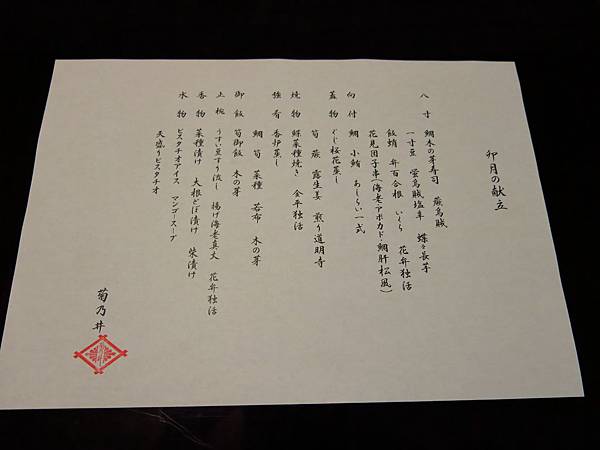 卯月の献立
八寸 鯛木の芽寿司 蕨烏賊 蝶々長芋
一寸豆 蛍烏賊塩辛
飯蛸 弁百合根 いくら 花弁独活
花見団子串(海老アボカド鯛肝松風)
向付 鯛 小鮪 あしらい一式
蓋物 ぐじ桜花蒸し
筍 蕨 露生姜 煎り道明寺
焼物 鱒菜種焼き 金平独活
強肴 香炉蒸し
鯛 筍 菜種 若布 木の芽
御飯 筍御飯 木の芽
止椀 うすい豆すり流し 揚げ海老真丈 花弁独活
香物 菜種漬け 大根どぼ漬け 柴漬け
水物 ピスタチオアイス マンゴースープ
天盛りピスタチオ
菊乃井